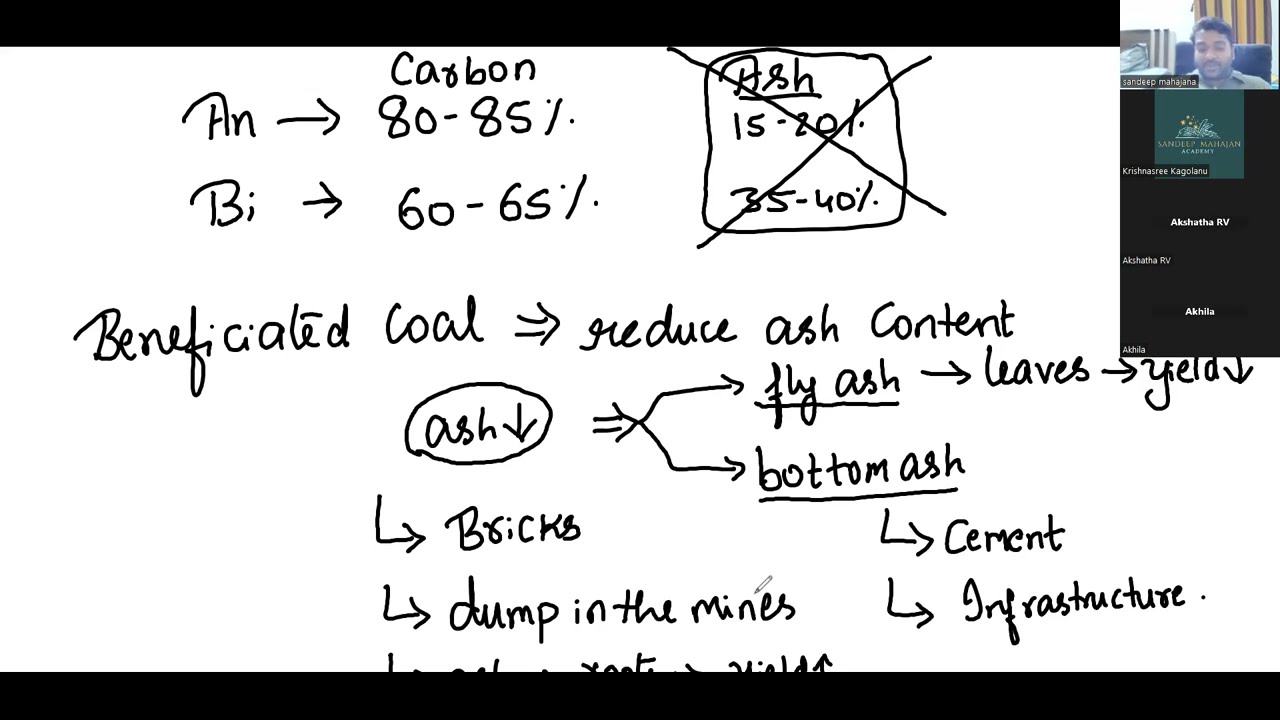 Carbon
Ash
An → 80-85%.
15-20%.
Bi → 60-65%.
35-40%.
Beneficiated Coal ⇒ reduce ash Content
ash↓ ⇒ fly ash → leaves → yield↓
bottom ash
↳ Bricks
↳ Cement
↳ dump in the mines
↳ Infrastructure.
yield↑
sandeep mahajana
SANDEEP MAHAJAN
ACADEMY
Krishnasree Kagolanu
Akshatha RV
Akshatha RV
Akhila
Akhila